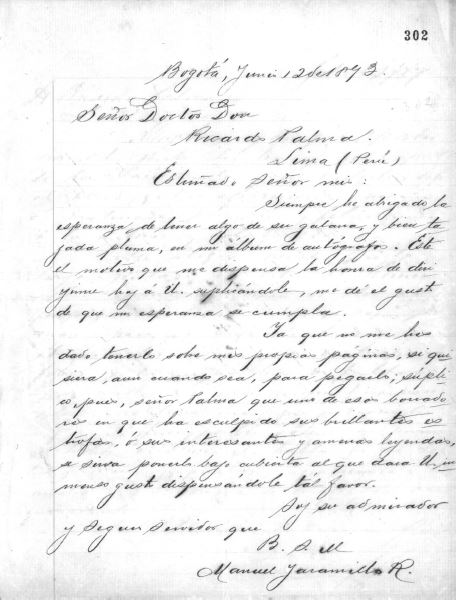 302
Bogotá, Junio 12 de 1893.
Señor Doctor Don
Ricardo Palma.
Lima (Perú)
Estimado Señor mio:
Siempre he abrigado la
esperanza de tener algo de su galana, y bien ta
jada pluma, en mi álbum de autógrafos. Este
el motivo que me dispensa la honra de diri
jirme hoy á U. suplicándole, me dé el gusto
de que mi esperanza se cumpla.
Ya que no me es
dado tenerlo sobre mis propias paginas, si qui
siera, aun cuando sea, para pegarlo; supli
co, pues, señor Palma que uno de esos borrado
ros en que ha esculpido sus brillantes es
trofas, ó sus interesantes y amenas leyendas,
se sirva ponerlo bajo cubierta al que dara U. in
menso gusto dispensándole tal favor.
Soy su admirador
y Seguro Servidor que
B. S. M
Manuel Jaramillo R.